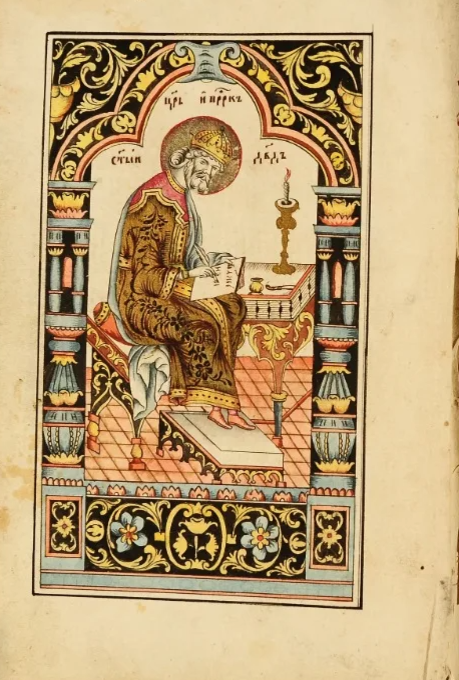 цр҃ь и҆ прⷪ҇ркъ
ст҃ыи дв҃дъ